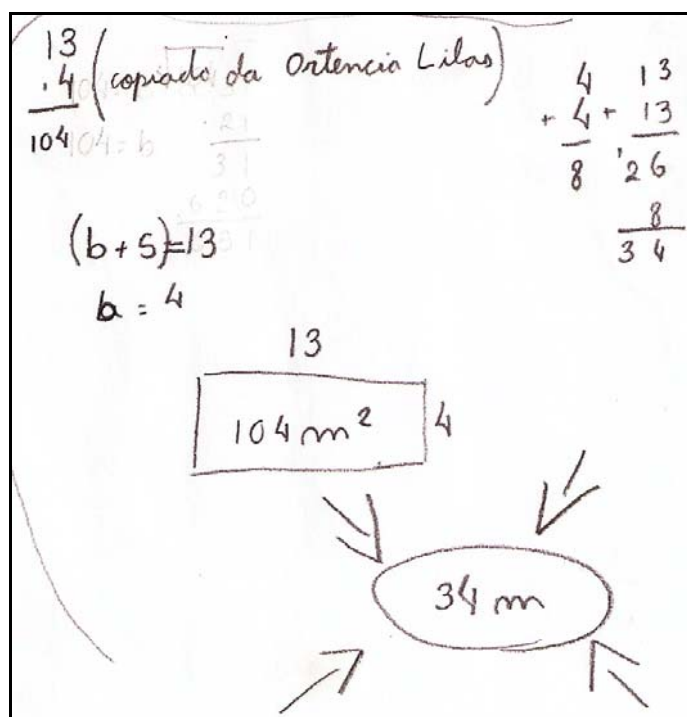 13
.4 (copiado da Ortencia Lilas)
104
4 13
+ 4 + 13
8 26
8
34
(b+5)=13
b = 4
13
104 m² 4
34 m